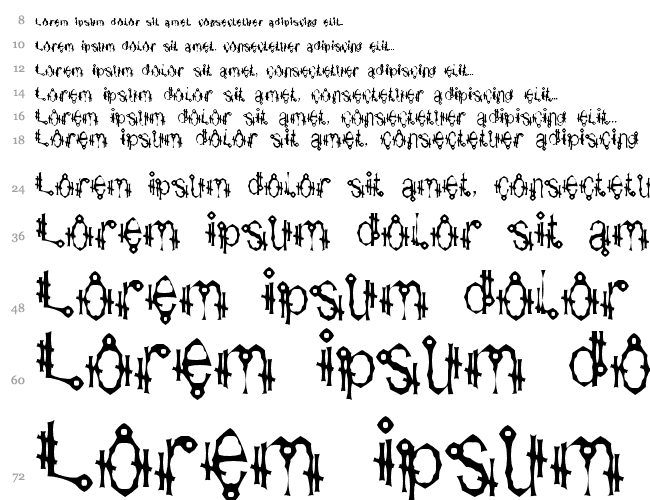 8 Lorem ipsum dolor sit amet, consectetuer adipiscing elit...
10 Lorem ipsum dolor sit amet, consectetuer adipiscing elit...
12 Lorem ipsum dolor sit amet, consectetuer adipiscing elit...
14 Lorem ipsum dolor sit amet, consectetuer adipiscing elit...
16 Lorem ipsum dolor sit amet, consectetuer adipiscing elit...
18 Lorem ipsum dolor sit amet, consectetuer adipiscing
24 Lorem ipsum dolor sit amet, consectetu
36 Lorem ipsum dolor sit am
48 Lorem ipsum dolor
60 Lorem ipsum do
72 Lorem ipsum